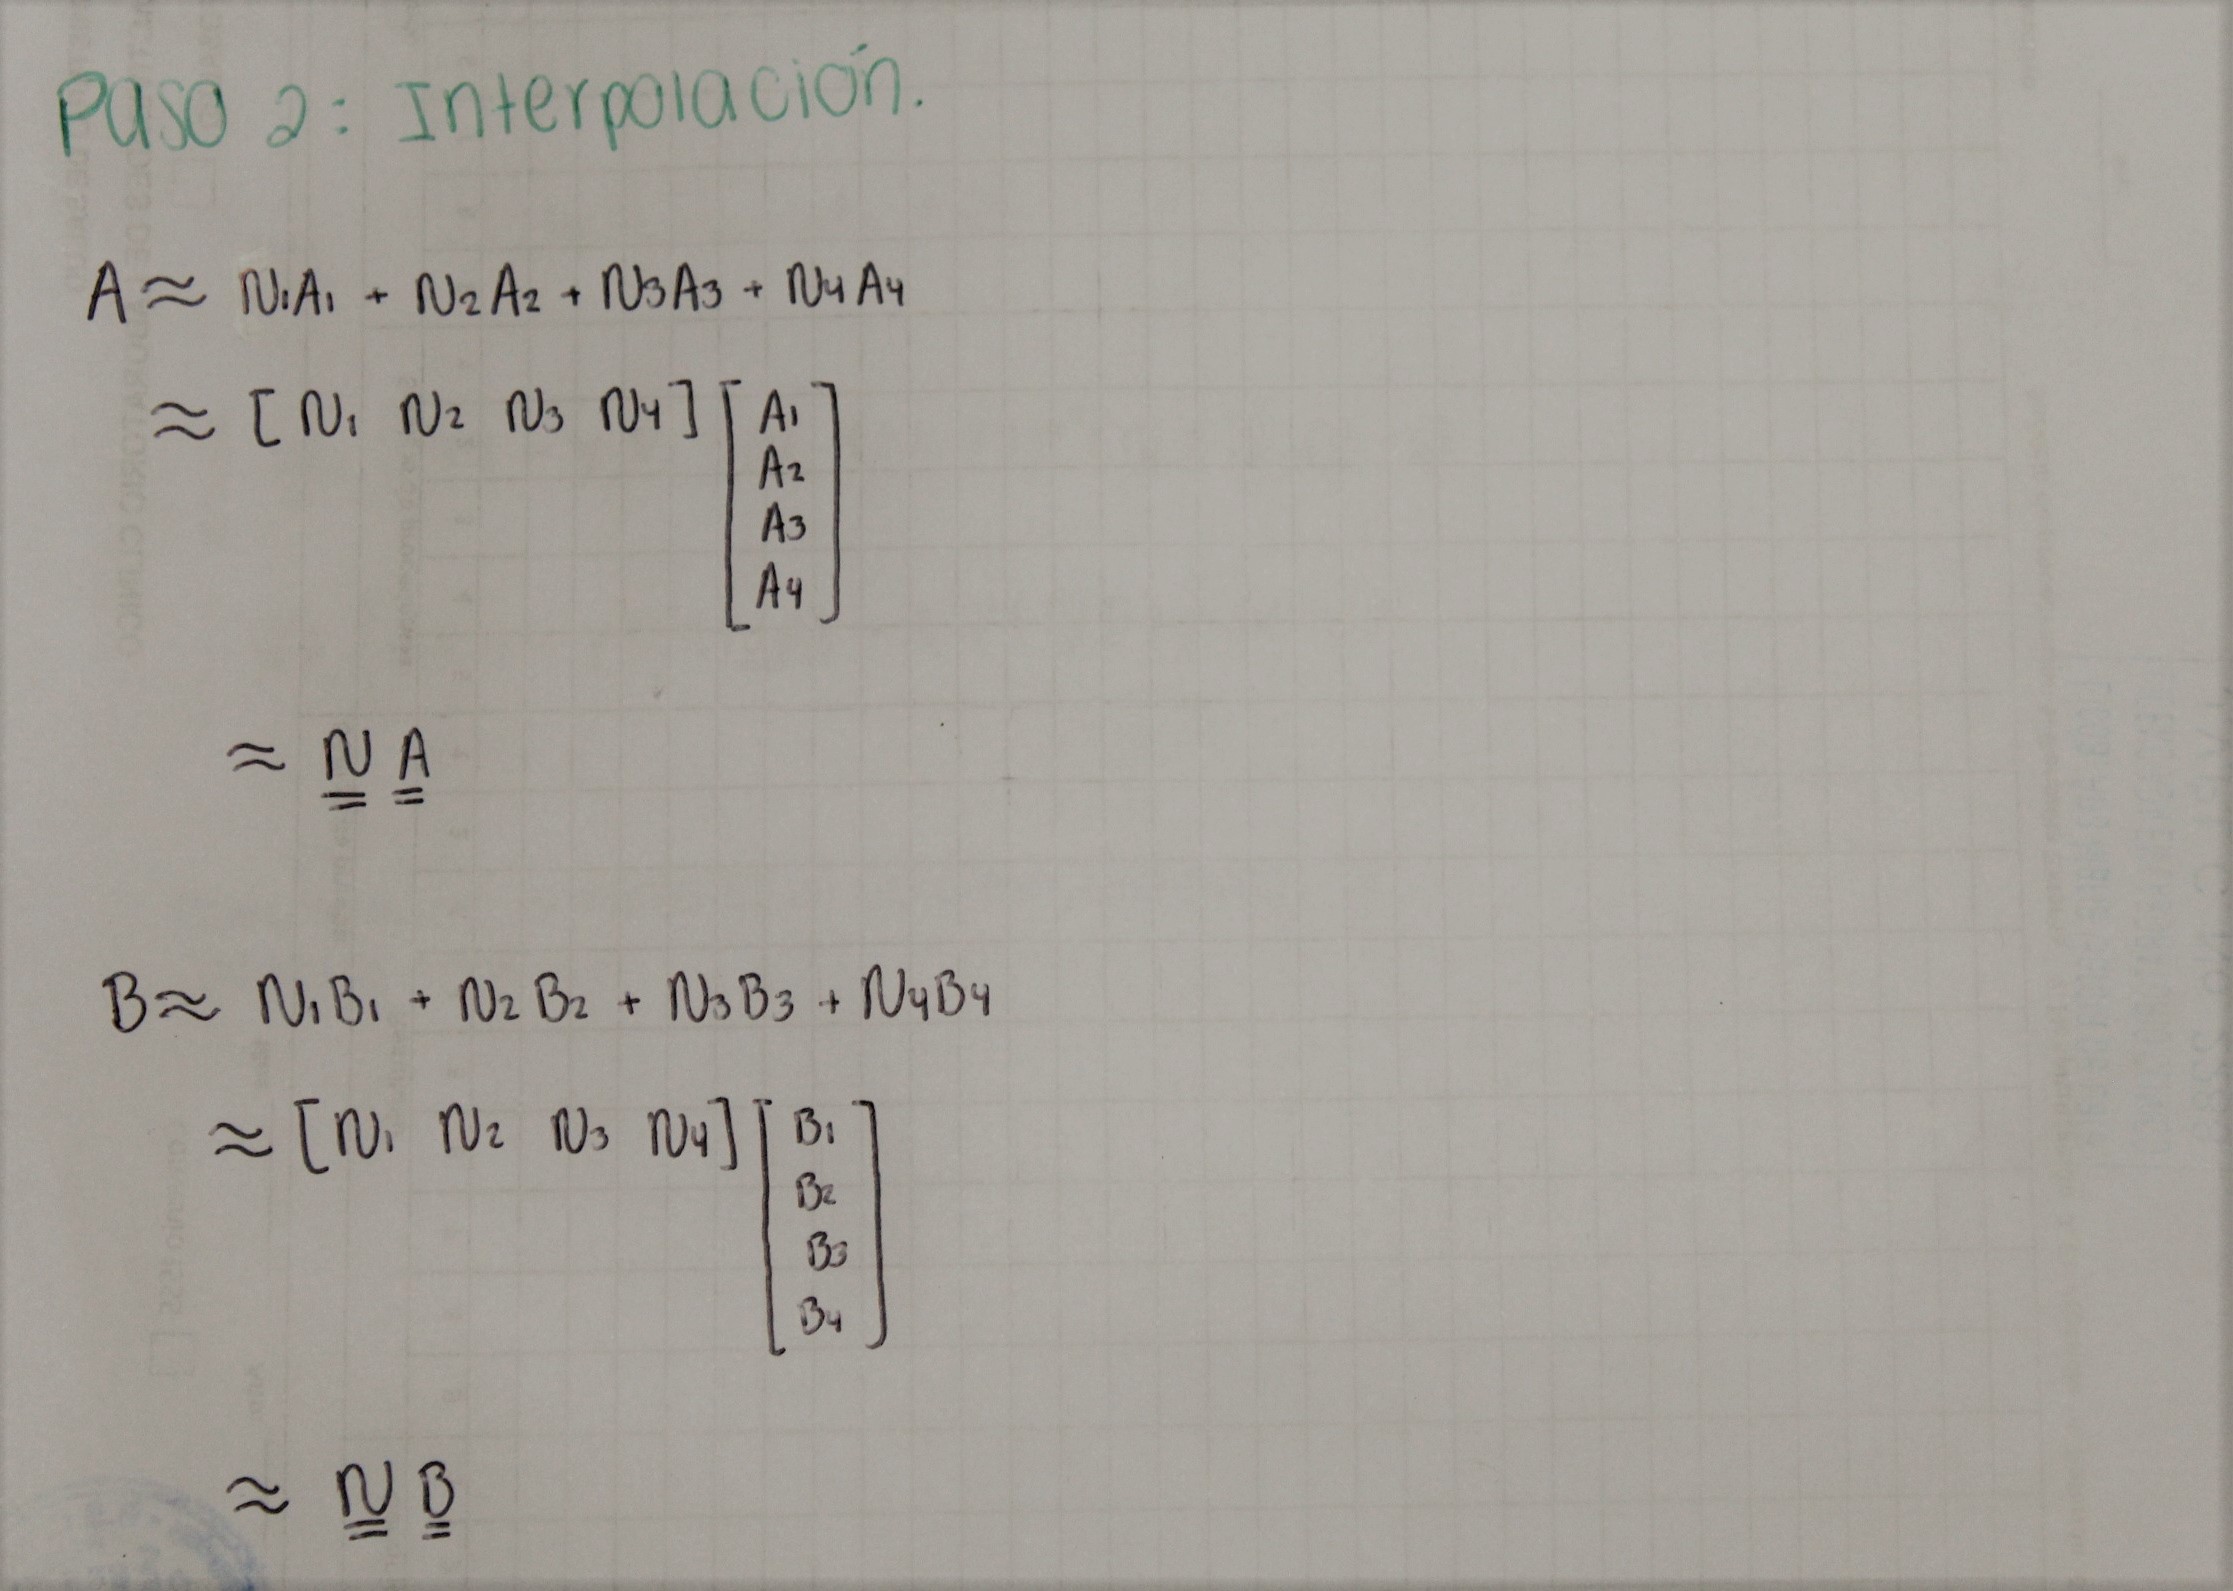 Paso 2: Interpolación.
A ≈ N₁A₁ + N₂A₂ + N₃A₃ + N₄A₄
≈ [N₁ N₂ N₃ N₄] [A₁
A₂
A₃
A₄]
≈ N A
B ≈ N₁B₁ + N₂B₂ + N₃B₃ + N₄B₄
≈ [N₁ N₂ N₃ N₄] [B₁
B₂
B₃
B₄]
≈ N B